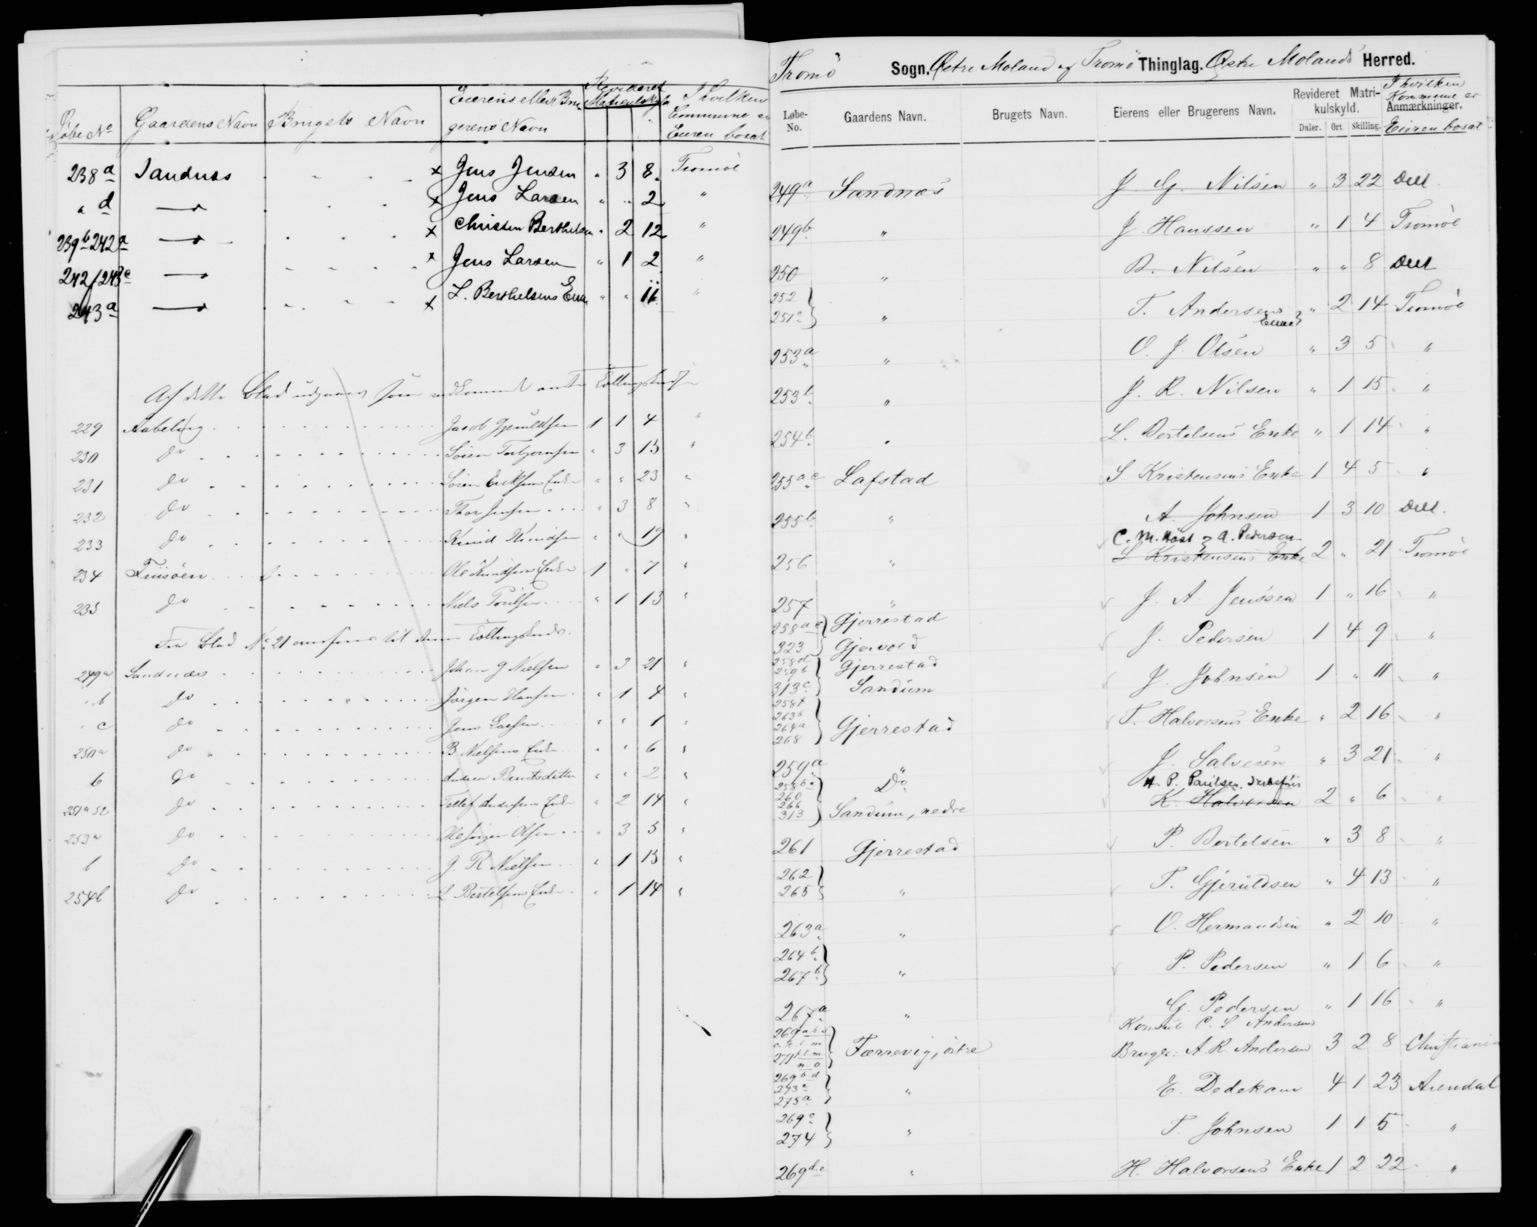 Løbe No Gaardens Navn Brugets Navn Eierens eller Brugerens Navn Revideret Matrikulskyld I hvilken Commune er Eieren bosat
238a Sandnæs × Jens Jensen " 3 8 Tromöe
" d × Jens Larsen " " 2 "
239b 242a × Christen Berthelsen " 2 12 "
242/243c × Jens Larsen " 1 2 "
243a × L. Berthelsens Enke " " 11 "
Af dette Blad udgaaer som
229 Aabeling Jacob Gjeruldsen 1 1 4 "
230 do Sören Torbjørnsen " 3 13 "
231 do Sören Eriksens Enke " " 23 "
232 do Thor Jensen " 3 8 "
233 do Knud Knudsen " " 19 "
234 Ole Knudsens Enke 1 " 7 "
235 do Niels Poulsen " 1 13 "
Fra Blad No 21 til denne
249a Sandnæs Johan G Nielsen " 3 21 "
" b do Jörgen Hansen " 1 4 "
" c do Jens Larsen " " 1 "
250a do B. Nielsens Enke " " 6 "
b do " " 2 "
251a 52 do Tellef Andersens Enke " 2 14 "
253a do Ole Jörgen Olsen " 3 5 "
b do J. R. Nielsen " 1 13 "
254b do L Bertelsens Enke " 1 14 "
Tromö Sogn. Østre Moland og Tromö Thinglag. Østre Molands Herred.
Løbe-No. Gaardens Navn. Brugets Navn. Eierens eller Brugerens Navn. Revideret Matrikulskyld. Daler. Ort. Skilling. I hvilken Kommune er Anmærkninger. Eieren bosat
249a Sandnæs J. G. Nilsen " 3 22 Död.
249b " J. Hanssen " 1 4 Tromöe
250 " B. Nilsen " " 8 Död
252 251a } " T. Andersens Enke } " 2 14 Tromöe
253a " O. J. Olsen " 3 5 "
253b " J. R. Nilsen " 1 15 "
254b " L. Bertelsens Enke " 1 14 "
255ac Lafstad S. Kristensens Enke 1 4 5 "
255b " A. Johnsen 1 3 10 Död.
C. M. Næss & A. Pedersen
256 " S Kristensens Enke 2 " 21 Tromöe
257 " J. A. Jenssen 1 " 16 "
258ac 323 } Gjerrestad Gjervold J. Pedersen 1 4 9 "
258d 259b 313c } Gjerrestad Sandum J. Johnsen 1 " 11 "
258f 263b 264a 268 } Gjerrestad T. Halvorsens Enke " 2 16 "
259a " J. Salvesen " 3 21 "
260 266 313 } Do Sandum, nedre H. P. Paulsen K. Halvorsen 2 " 6 "
261 Gjerrestad P. Bertelsen " 3 8 "
262 265 } " T. Gjeruldsen " 4 13 "
263a " O. Hermansen " 2 10 "
264b 267b } " P. Pedersen " 1 6 "
267a " G. Pedersen " 1 16 "
Konsul C. S Andersen
Færrevig, östre Bruger: A R. Andersen 3 2 8 Christiania
269bd 273c 275a } " E. Dedekam 4 1 23 Arendal
269c 274 } " T. Johnsen 1 1 5 "
269de " H. Halvorsens Enke 1 2 22 "